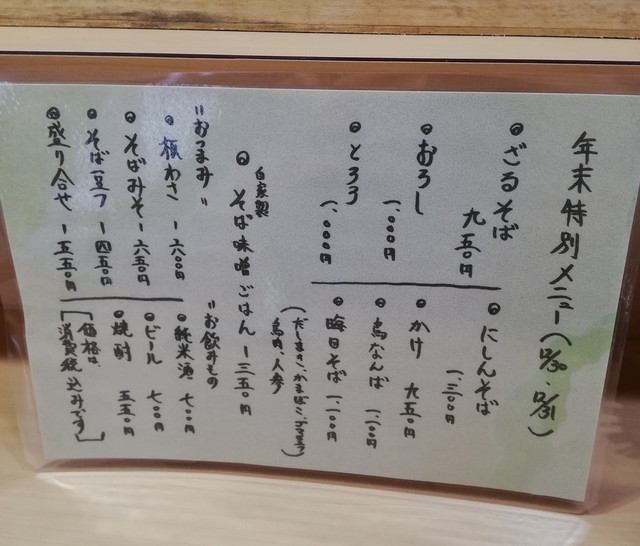 年末特別メニュー(12/30、12/31)
◎ざるそば
九五〇円
◎おろし
一、〇〇〇円
◎とろろ
一、〇〇〇円
◎にしんそば
一、三〇〇円
◎かけ 九五〇円
◎鳥なんば 一、一〇〇円
◎晦日そば 一、一〇〇円
(だしまき、かまぼこ、
鳥肉、人参
自家製
◎そば味噌ごはん ー 三五〇円
"おつまみ"
◎板わさ ー 六〇〇円
◎そばみそ ー 六五〇円
◎そば豆フ ー 四五〇円
◎盛り合せ ー 五五〇円
"お飲みもの
◎純米酒 七〇〇円
◎ビール 七〇〇円
◎焼酎 五五〇円
[価格は、
消費税込みです]